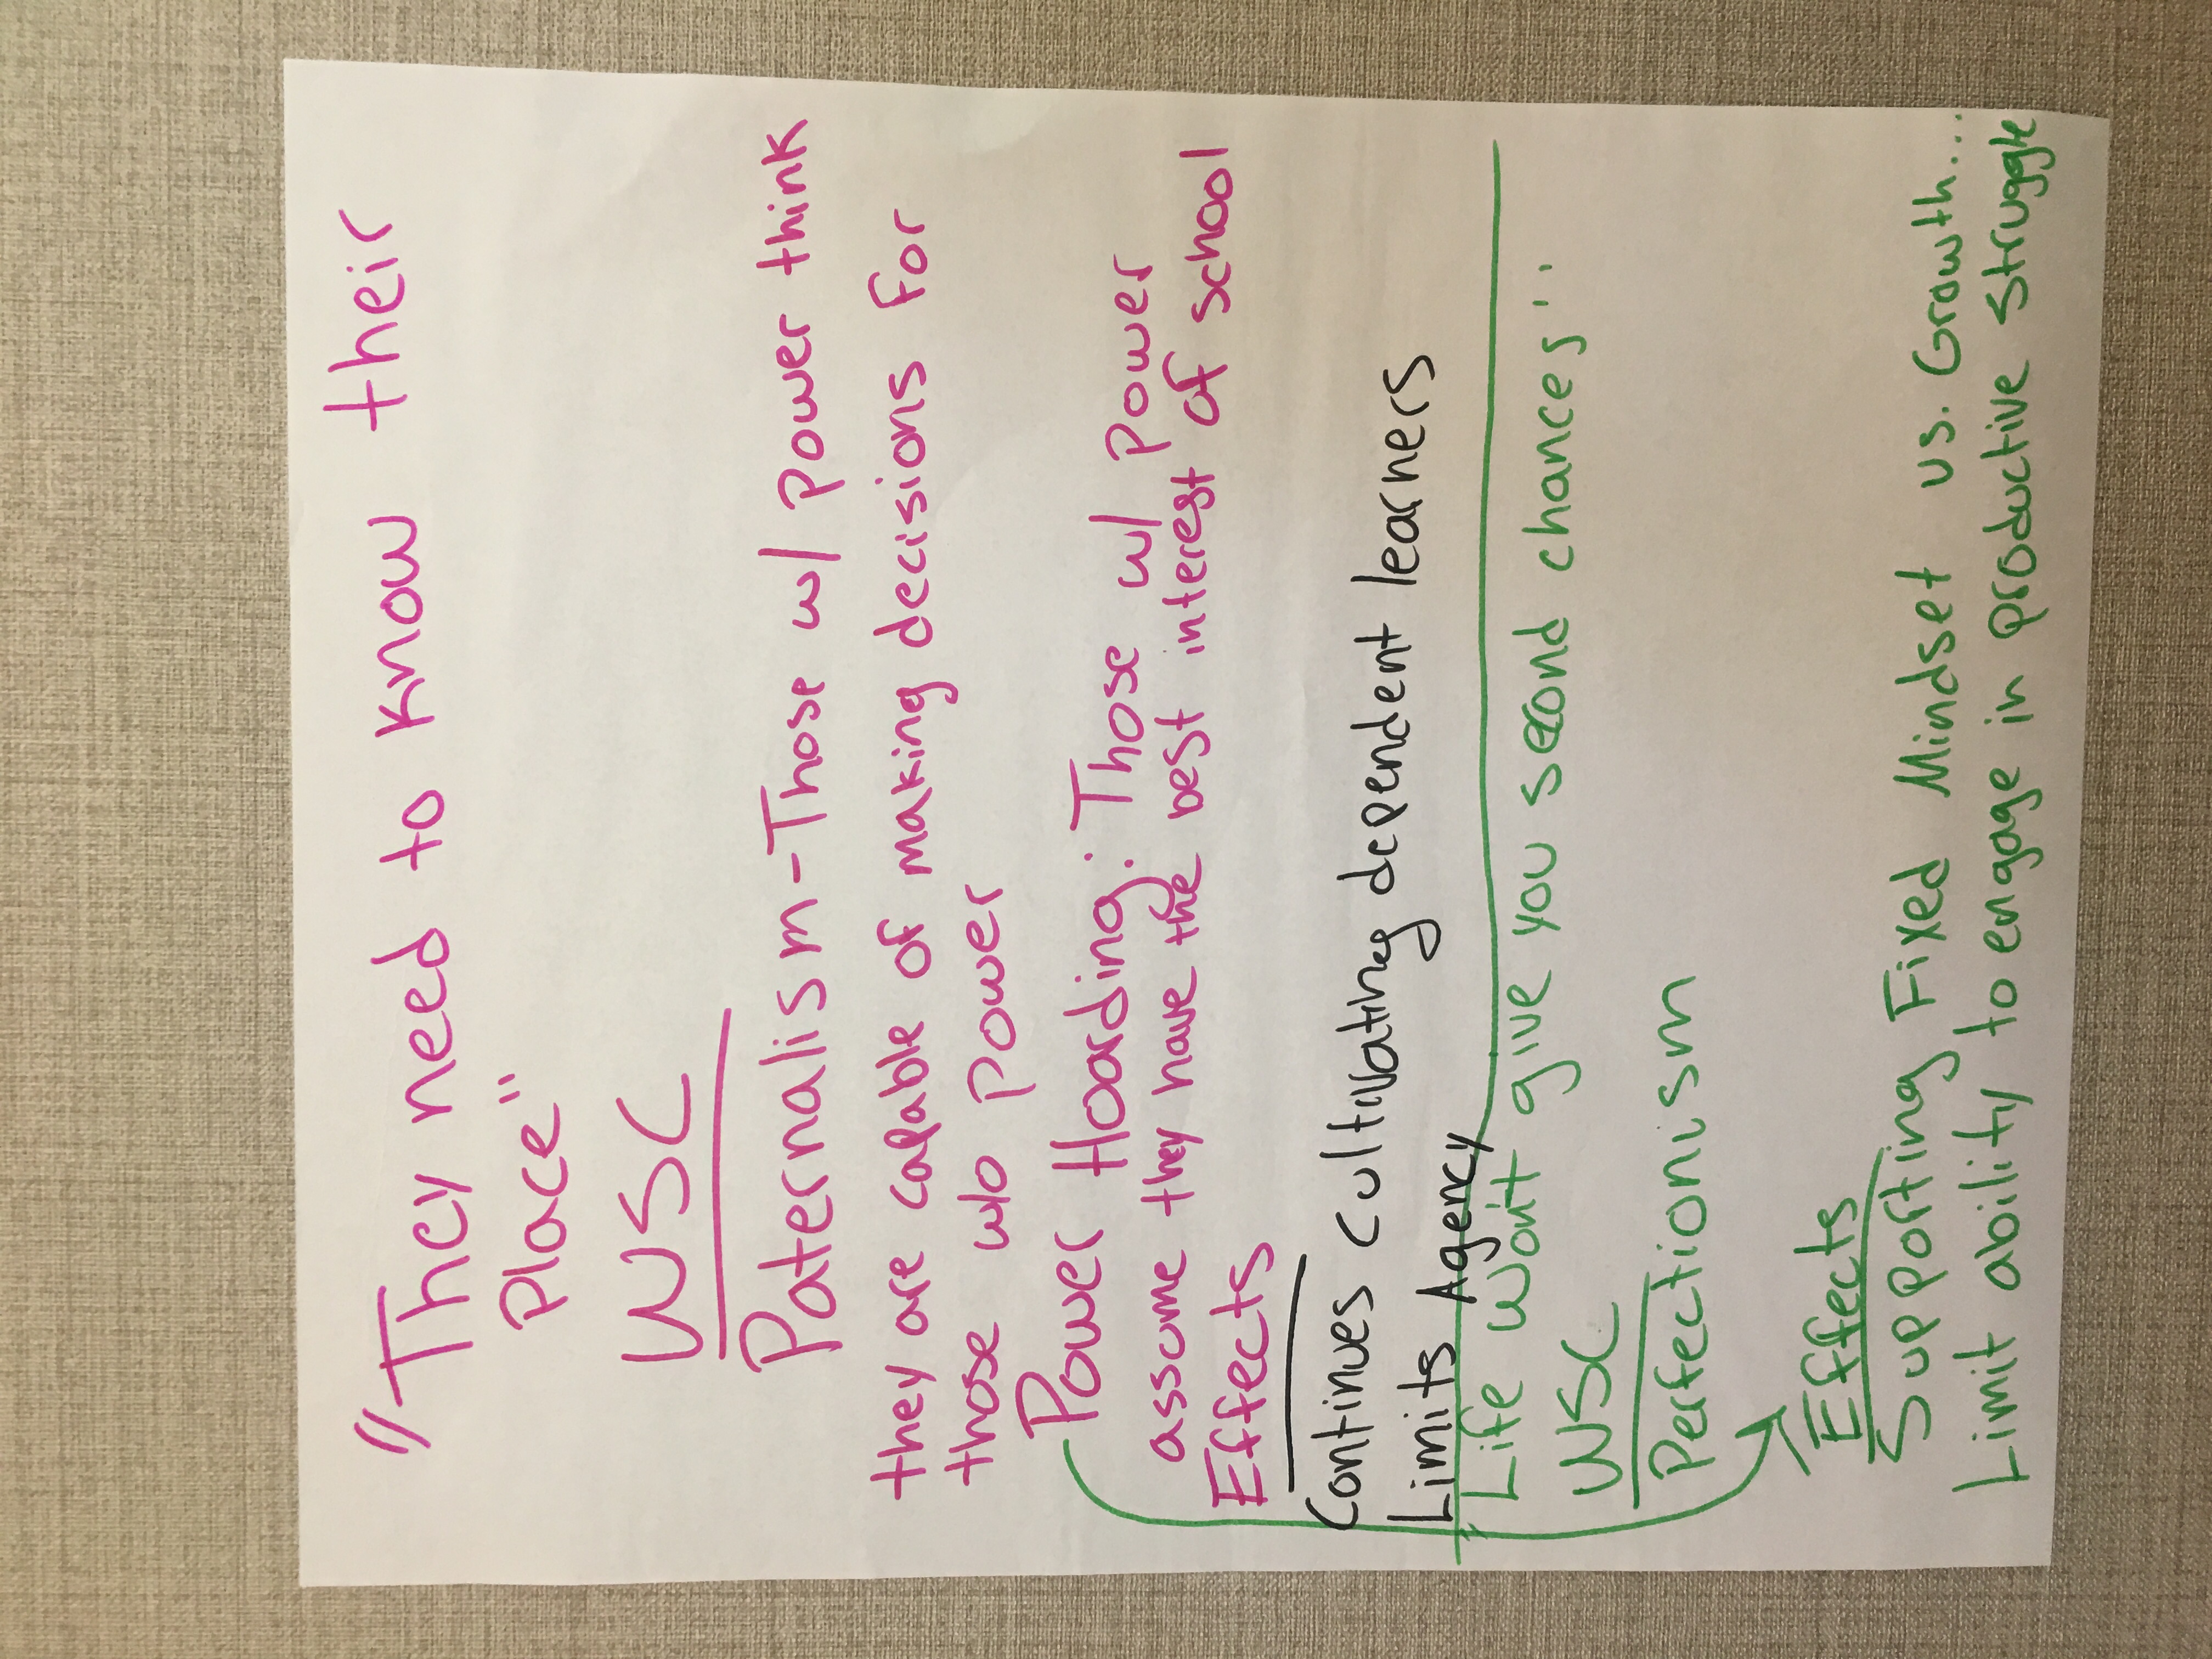 "They need to know their
Place"
WSC
Paternalism-Those w/ power think
they are capable of making decisions for
those w/o power
Power Hoarding: Those w/ Power
assume they have the best interest of school
Effects
Continues cultivating dependent learners
Limits Agency
"Life won't give you second chances"
WSC
Perfectionism
Effects
Supporting Fixed Mindset vs. Growth...
Limit ability to engage in productive struggle